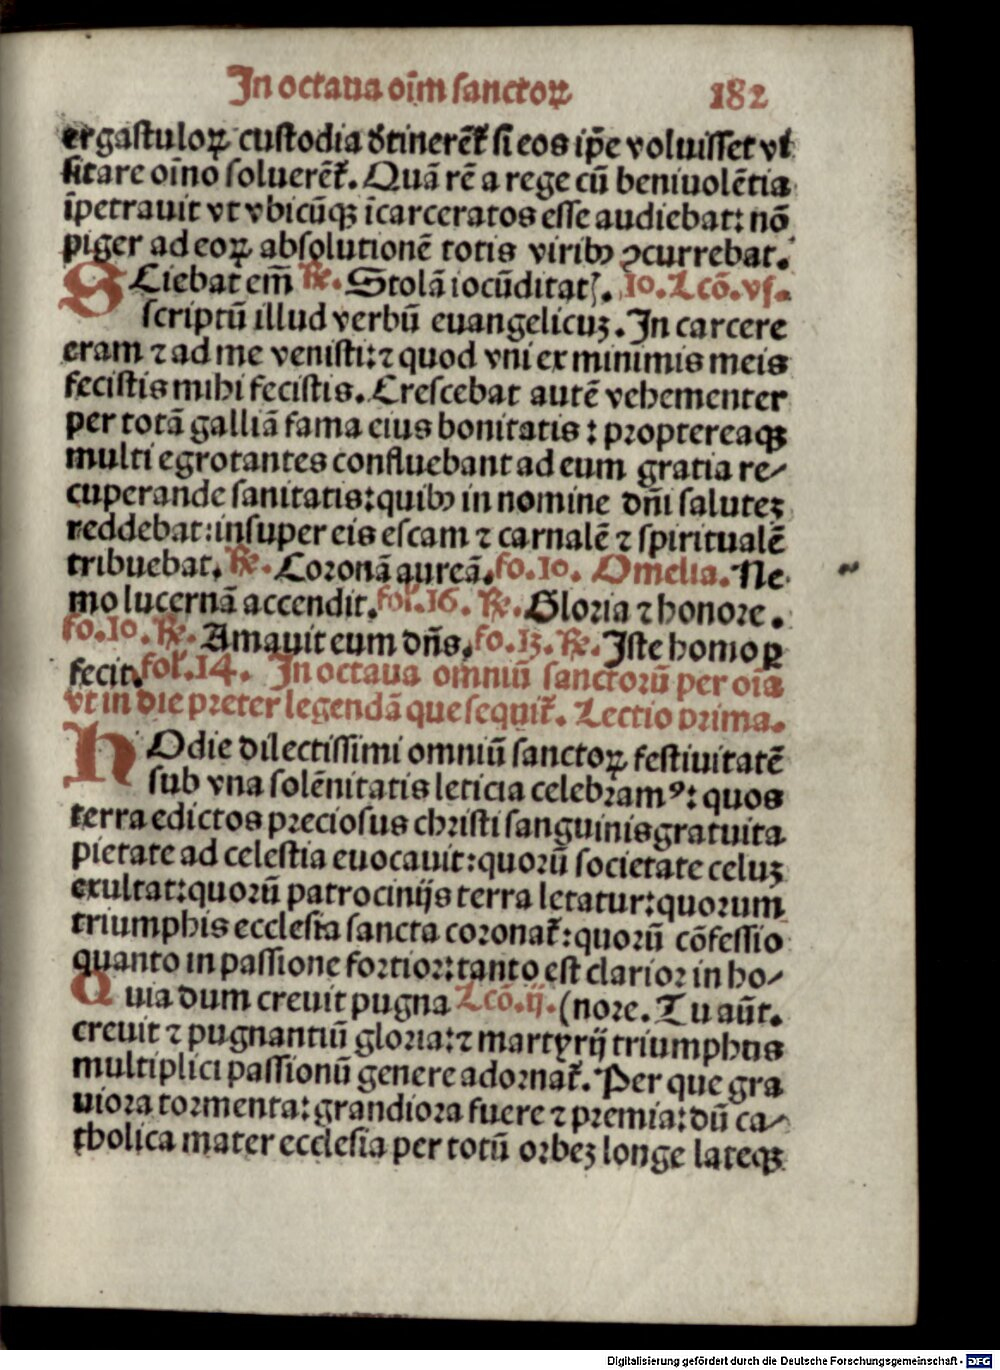 In octaua oīm sanctoꝝ 182
ergastuloꝝ custodia đtinerēt̉ si eos ip̄e voluisset vi
sitare oīno soluerēt̉. Quā rē a rege cū beniuolētia
īpetrauit vt vbicūqꝫ īcarceratos esse audiebat: nō
piger ad eoꝝ absolutionē totis viribꝰ ꝯcurrebat.
SCiebat em̄ ℟. Stolā iocūditatꝭ. Io. Lcō. vj.
scriptū illud verbū euangelicuꝫ. In carcere
eram ⁊ ad me venisti: ⁊ quod vni ex minimis meis
fecistis mihi fecistis. Crescebat autē vehementer
per totā galliā fama eius bonitatis: proptereaqꝫ
multi egrotantes confluebant ad eum gratia re⸗
cuperande sanitatis: quibꝰ in nomine dn̄i saluteꝫ
reddebat: insuper eis escam ⁊ carnalē ⁊ spiritualē
tribuebat. ℟. Coronā aureā. fo. 10. Omelia. Ne
mo lucernā accendit. fol. 16. ℟. Gloria ⁊ honore.
fo. 10. ℟. Amauit eum dn̄s. fo. 13. ℟. Iste homo ꝑ
fecit. fol. 14. In octaua omniū sanctorū per oīa
vt in die preter legendā que sequit̉. Lectio prima.
HOdie dilectissimi omniū sanctoꝝ festiuitatē
sub vna solēnitatis leticia celebramꝰ: quos
terra edictos preciosus christi sanguinis gratuita
pietate ad celestia euocauit: quorū societate celuꝫ
exultat: quorū patrocinijs terra letatur: quorum
triumphis ecclesia sancta coronat̉: quorū cōfessio
quanto in passione fortior: tanto est clarior in ho⸗
Quia dum creuit pugna Lcō. ij. (nore. Tu aūt.
creuit ⁊ pugnantiū gloria: ⁊ martyrij triumphus
multiplici passionū genere adornat̉. Per que gra
uiora tormenta: grandiora fuere ⁊ premia: dū ca⸗
tholica mater ecclesia per totū orbeꝫ longe lateqꝫ
Digitalisierung gefördert durch die Deutsche Forschungsgemeinschaft - DFG